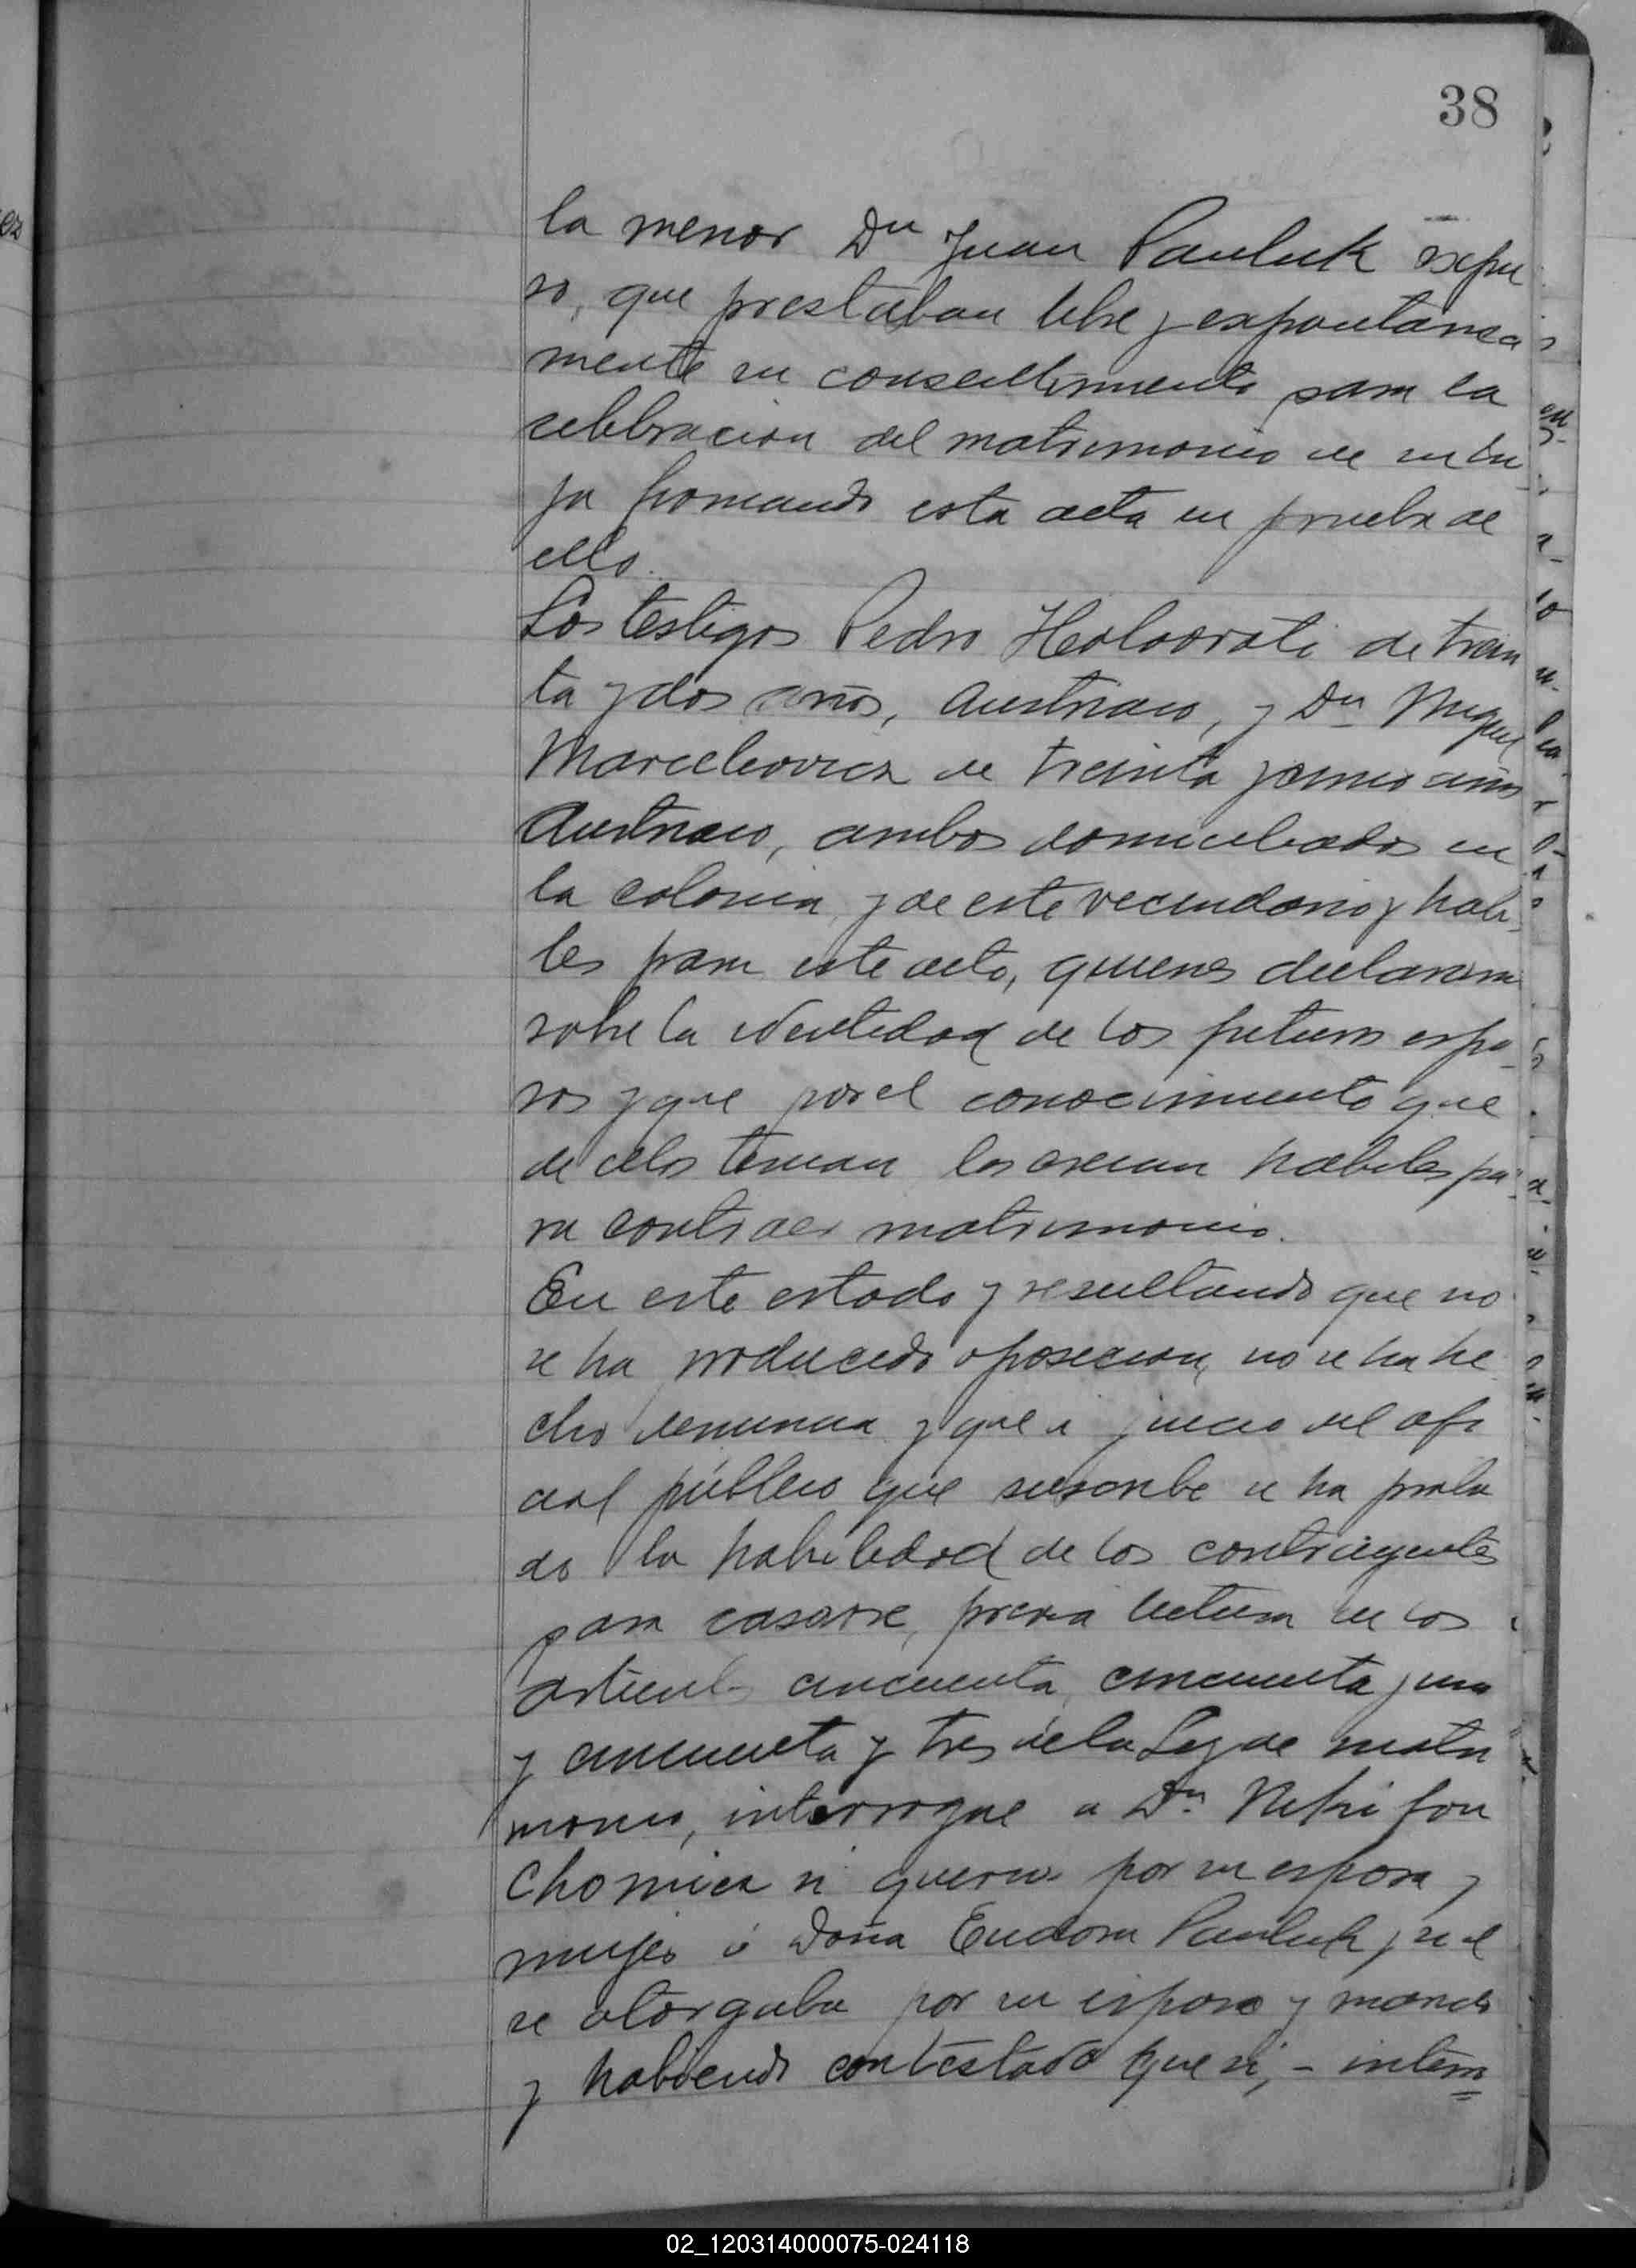 38
la menor Dn Juan Pauluk expu
so, que prestaban libre y expontanea
mente su consentimiento para la
celebracion del matrimonio de su hi
ja firmando esta acta en prueba de
ello.
Los testigos Pedro Holoorati de trein
ta y dos años, Austriaco, y Dn Miguel
Marcelovicz de treinta y cinco años
Austriaco, ambos domiciliados en
la colonia y de este vecindario y habi
les para este acto, quienes declararon
sobre la identidad de los futuros espo
sos y que por el conocimiento que
de ellos tenian los creian habiles pa
ra contraer matrimonio.
En este estado y resultando que no
se ha producido oposicion, no se ha he
cho denuncia y que a juicio del ofi
cial público que suscribe se ha proba
do la habilidad de los contrayentes
para casarse, previa lectura de los
articulos cincuenta, cincuenta y uno
y cincuenta y tres de la Ley de matri
monio, interrogue a Dn Nikifon
Chomicz si queria por su esposa y
mujer á Doña Eudora Pauluk y si el
se otorgaba por su esposo y marido
y habiendo contestado que si, - interro
02_120314000075-024118